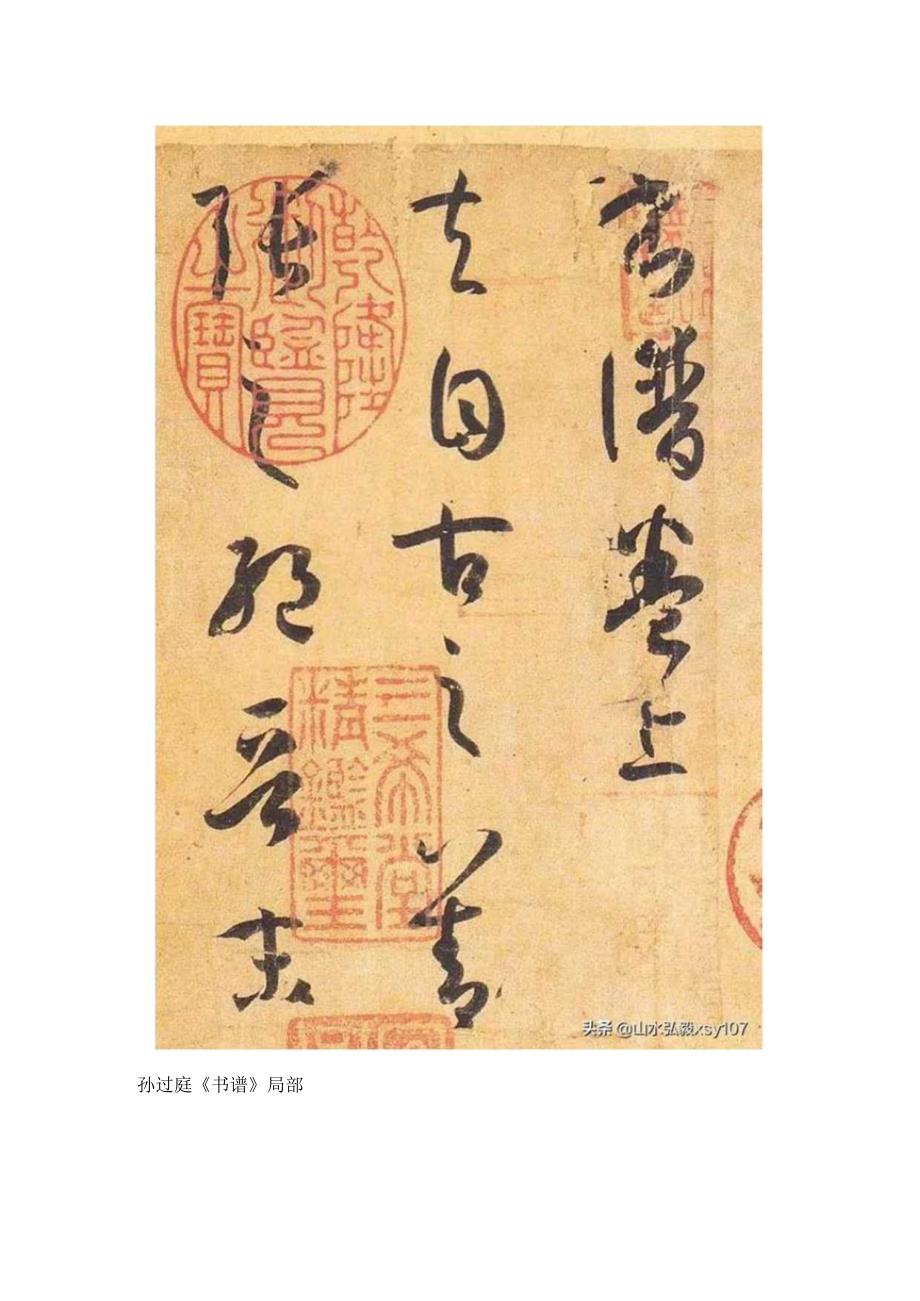 書譜卷上
夫自古之善
張之絕晉末
乾隆御覽之寶
三希堂精鑑璽
头条 @山水弘毅xsy107
孙过庭《书谱》局部